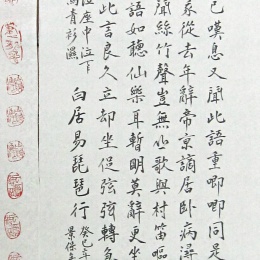 已嘆息又聞此語重唧唧同是
我從去年辭帝京謫居臥病潯
聞絲竹聲豈無山歌與村笛嘔
語如聽仙樂耳暫明莫辭更坐
此言良久立却坐促弦弦轉急
泣座中泣下
馬青衫濕
白居易琵琶行
癸巳年